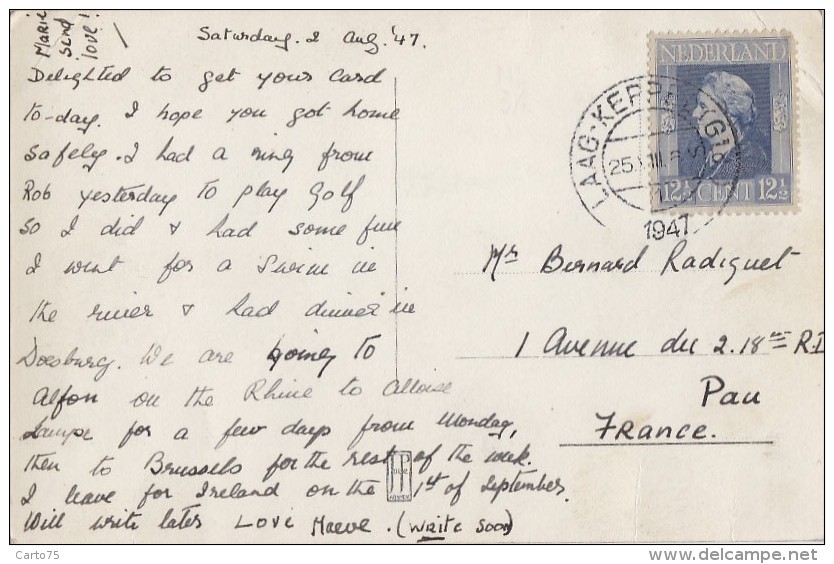 Marie
send
love!
Saturday. 2 Aug. '47.
Delighted to get your card
to-day. I hope you got home
safely. I had a ring from
Rob yesterday to play golf
so I did & had some fun
I went for a swim in
the river & had dinner in
Doesburg. We are going to
Alfon on the Rhine to
for a few days from Monday,
then to Brussels for the rest of the week.
I leave for Ireland on the 1st of September.
Will write later Love Maeve. (Write soon)
NEDERLAND
12½ CENT 12½
LAAG-KEPPEL (GLD)
1947
Mr Bernard Radiguet
1 Avenue du 2.18me R.I
Pau
France.
Carto75
www.delcampe.net